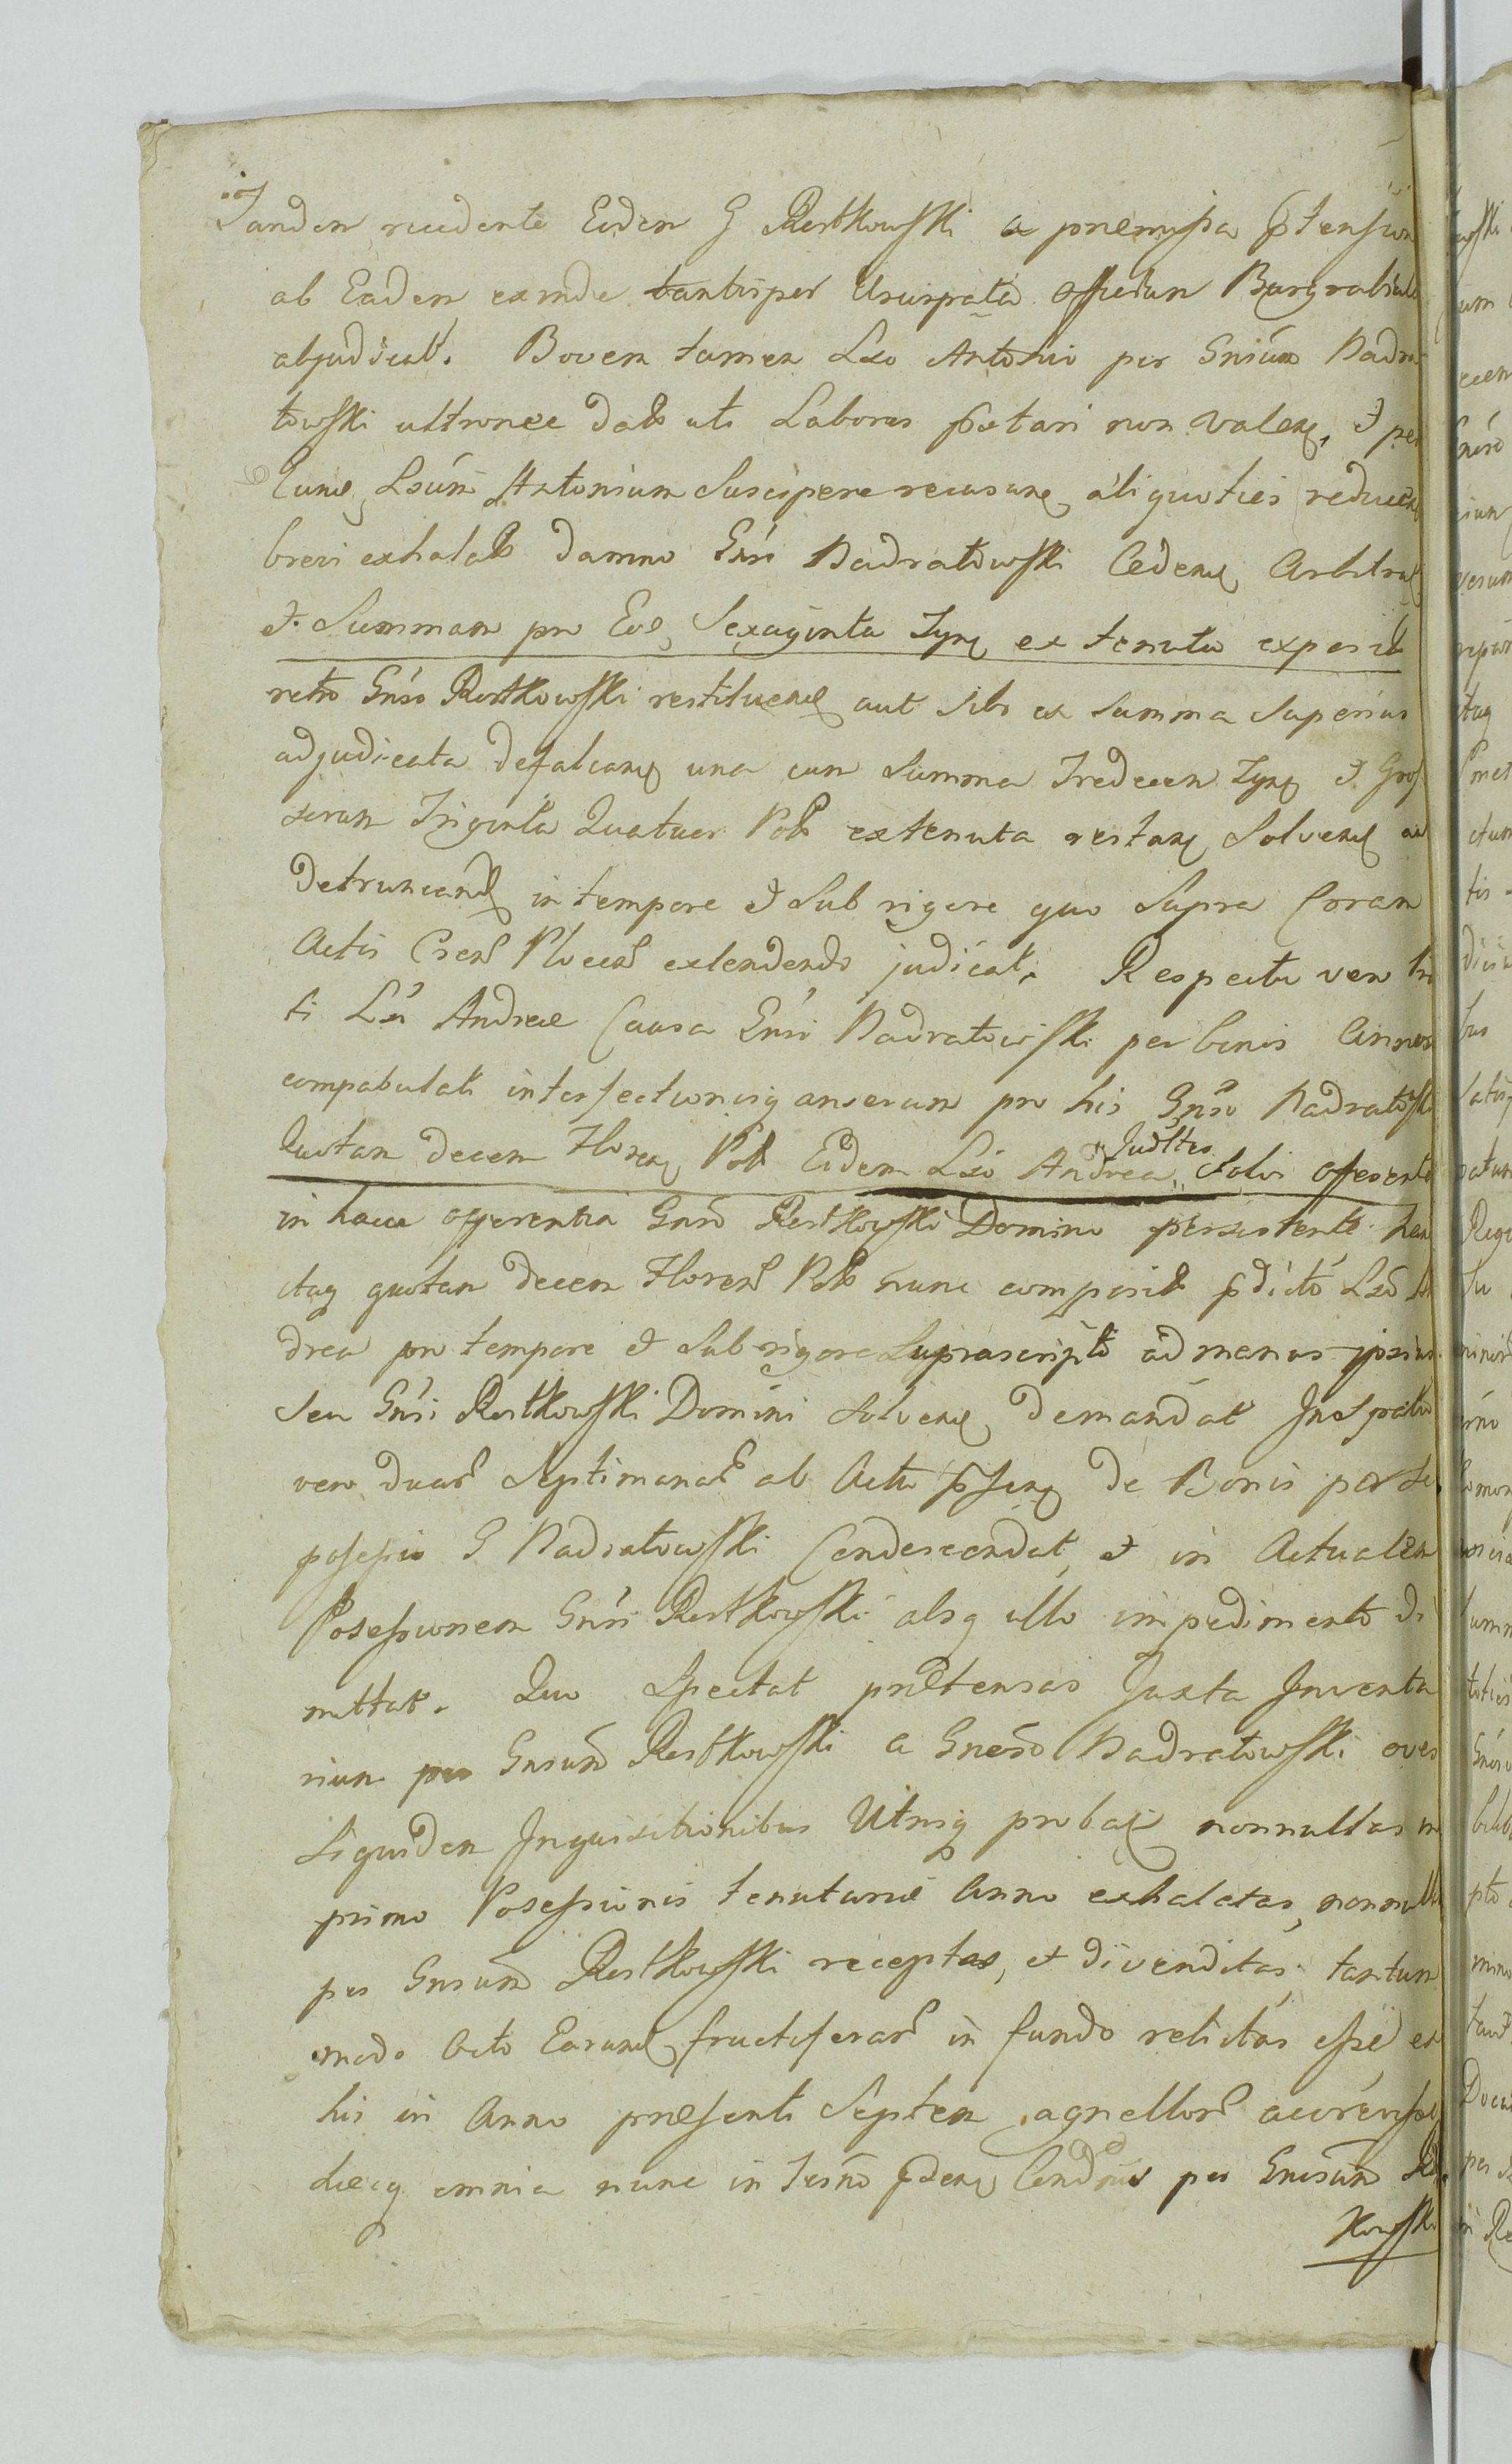 Tandem recedente Eidem G Rostkowski a præmissa ptension
ab Eadem exinde tantisper Usurpata Officium Burgrabiale
abjudicat. Bovem tamen Lso Antonio per Gnsum Nadra
towski ultronee dat uti Labores pstari non valen, et per
Eund Lsum Antonium Suscipere recusan aliquoties reducen
brevi exhalat damno Gnsi Nadratowski Ceden Arbitrat
et Summam pro Eod Sexaginta Tynf ex tenuta exposit
retro Gnso Rostkowski restituend aut sibi ex Summa Superius
adjudicata defalcand una cum Summa Tredecem Tynf et Gros
sorum Triginta Quatuor Pol ex tenuta restan Solvend aut
detruncand in tempore et Sub rigore quo Supra Coram
Actis Cren Plocen extendendo judicat. Respectu vero
ti Lsi Andreæ Causa Gnsi Nadratowski per binis Annos
compabulati interfectionisq anserum pro his Gnso Nadratowski
Quotam decem Floren Pol Eidem Lso Andrea Judltes Solvi offerente
in hacce offerentia Gnso Rostkowski Domino persistente
itaq quotam decem Floren Pol nunc composit pdicto Lso An
drea pro tempore et Sub rigore Suprascripto ad manus ipsius
seu Gnsi Rostkowski Domini Solvend demandat In Spatio
vero duar Septimanar ab Actu psen de Bonis per se
possessis G Nadratowski Condescendat, et in Actualem
Possessionem Gnsi Rostkowski absq ullo impedimento di
mittat. Quo Spectat prætensas Juxta Inventa
rium per Gnsum Rostkowski a Gneso Nadratowski oves
Siquidem Inquisitionibus Utriusq probat nonnullas in
primo Possessionis tenutariæ Anno exhalatas, nonnullas
per Gnsum Rostkowski receptas, et divenditas, tantum
modo Octo Earund fructiferar in fundo relictas esse ex
his in Anno præsenti Septem agnellor accrevisse
hæcq omnia nunc in Tersno Cendnis per Gnesum Rost
kowski